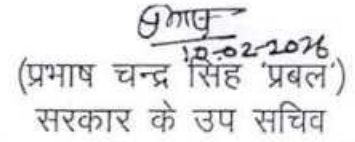 10.02-2026
(प्रभाष चन्द्र सिंह 'प्रबल')
सरकार के उप सचिव